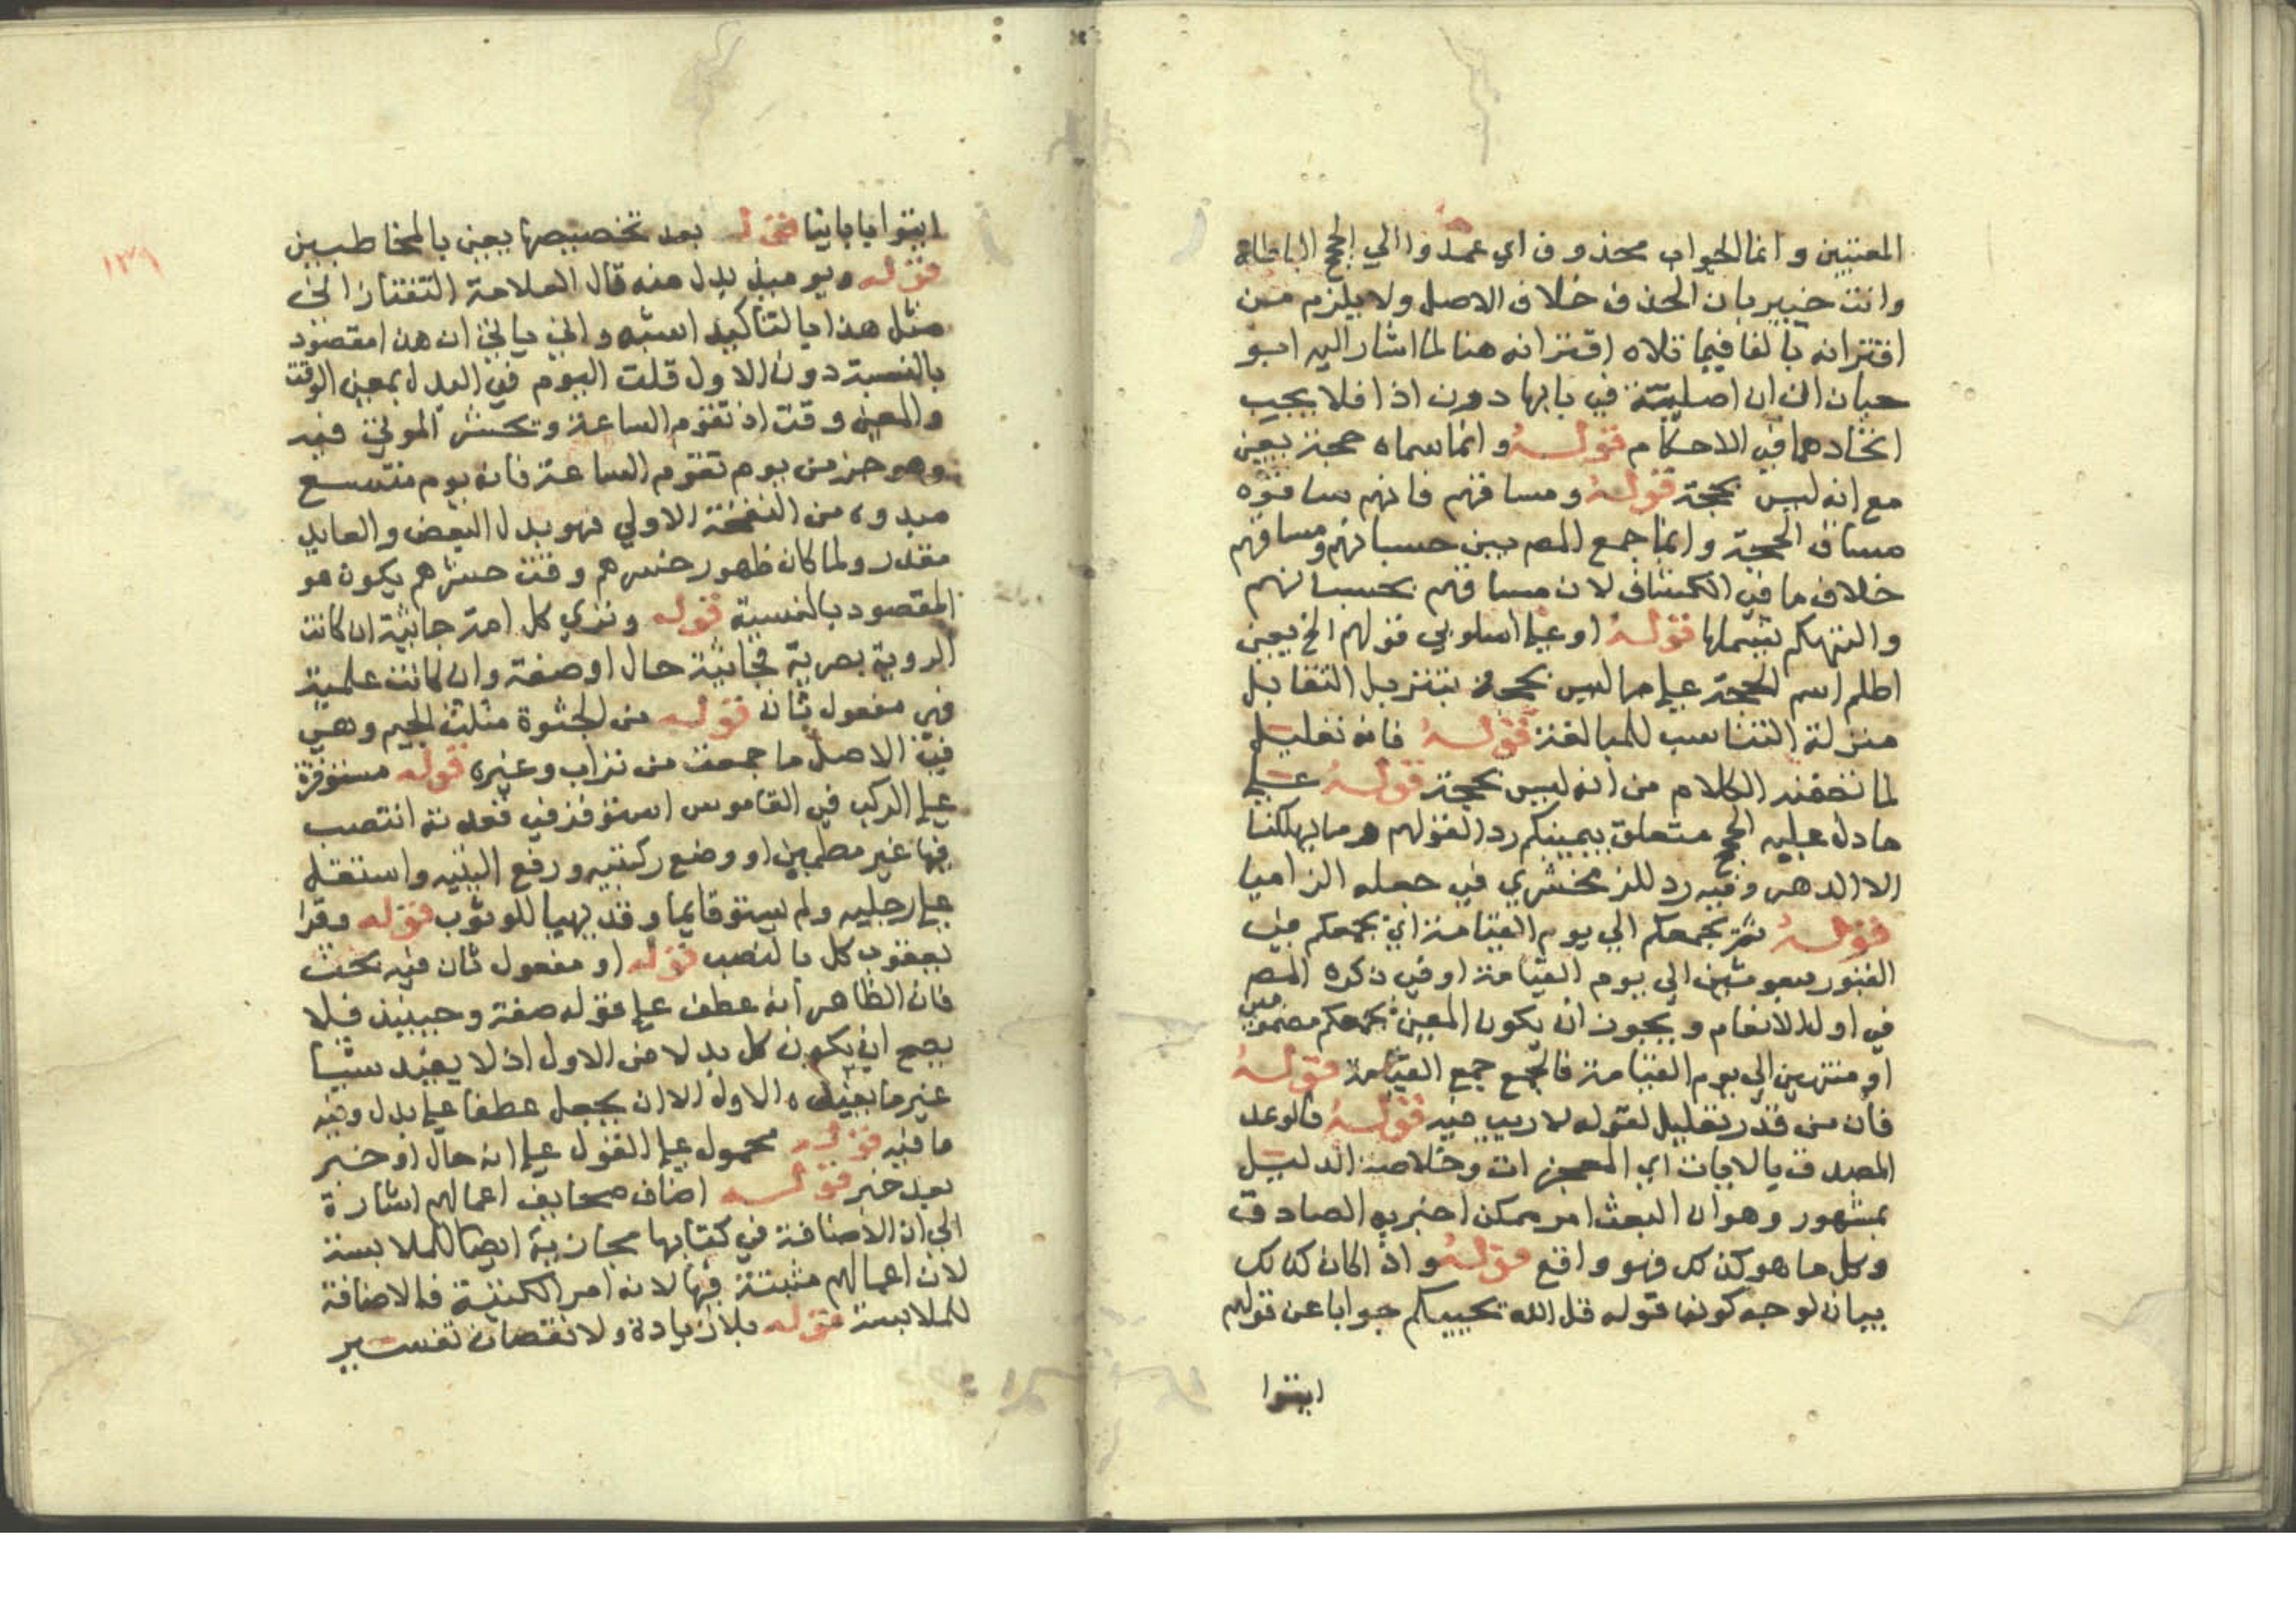 المعنيين وانما الجواب محذوف اي عمدوا الي الحجج الباطلة
وانت خبير بان الحذف خلاف الاصل ولا يلزم من
اقترانه بالفا فيما تلاه اقترانه هنا لما اشار اليه ابو
حيان ان اصلية في بابها دون اذا فلا يجب
اتخادهما في الاحكام قوله وانما سماه حجة يعني
مع انه ليس بحجة قوله ومساقهم فانهم ساقوه
مساق الحجة وانما جمع المص بين حسبانهم ومساقهم
خلاف ما في الكشاف لان مساقهم بحسبانهم
والتهكم يشملها قوله او علي اسلوب قولهم الخ يعني
اسم الحجة علي ما ليس بحجة بتنزيل التقابل
منزلة التناسب للمبالغة قوله فانه تعليل
لما تضمنه الكلام من انه ليس بحجة قوله علي
ما دل عليه الحجج متعلق بيميتكم رد لقولهم وما يهلكنا
الا الدهر وفيه رد للزمخشري في جعله الزاميا
قوله ثم يجمعكم الي يوم القيامة اي يجمعكم في
القبور مبعوثين الي يوم القيامة او في ذكره المص
في اول الانعام ويجوز ان يكون المعني يجمعكم مضمومين
او منتهين الي يوم القيامة فالجمع جمع القيامة قوله
فان من قدر تعليل لقوله لا ريب فيه قوله فالوعد
المصدق بالايات اي المعجزات وخلاصة الدليل
بمشهور وهو ان البعث امر ممكن اخبر به الصادق
وكل ما هو كذلك فهو واقع قوله واذا كان كذلك
بيان لوجه كون قوله قل الله يحييكم جوابا عن قولهم
ايتوا
ايتوا باباينا قوله بعد تخصيصها يعني بالمخاطبين
قوله ويوميذ بدل منه قال العلامة التفتازاني
مثل هذا بالتاكيد اشبه واني ياتي ان هذا مقصود
بالنسبة دون الاول قلت اليوم في البدل بمعني الوقت
والمعني وقت اذ تقوم الساعة وتحشر الموتي فيه
وهو جز من يوم تقوم الساعة فانه يوم متسع
مبدوه من النفخة الاولي فهو بدل البعض والعايد
مقدر ولما كان ظهور خسرهم وقت حشرهم يكون هو
المقصود بالنسبة قوله وتري كل امة جاثية ان كانت
الروية بصرية فجاثية حال او صفة وان كانت علمية
فهي مفعول ثان قوله من الجثوة مثلث الجيم وهي
في الاصل ما جمعت من تراب وغيره قوله مستوفزة
علي الركب في القاموس استوفز في قعدته انتصب
فيها غير مطمين او وضع ركبتيه ورفع اليتيه واستقل
علي رجليه ولم يستو قايما وقد تهيا للوثوب قوله وقرا
يعقوب كل بالنصب قوله او مفعول ثان فيه بحث
فان الظاهر انه عطف علي قوله صفة وحينيذ فلا
يصح ان يكون كل بدلا من الاول اذ لا يفيد شيئا
غير ما يفيده الاول الا ان يجعل عطفا علي بدل وفيه
ما فيه قوله محمول علي القول علي انه حال او خبر
بعد خبر قوله اضاف صحايف اعمالهم اشارة
الي ان الاضافة في كتابها مجازية ايضا للملابسة
لان اعمالهم مثبتة فيها لانه امر الكتبة فالاضافة
للملابسة قوله بلا زيادة ولا نقصان تفسير
١٣٩